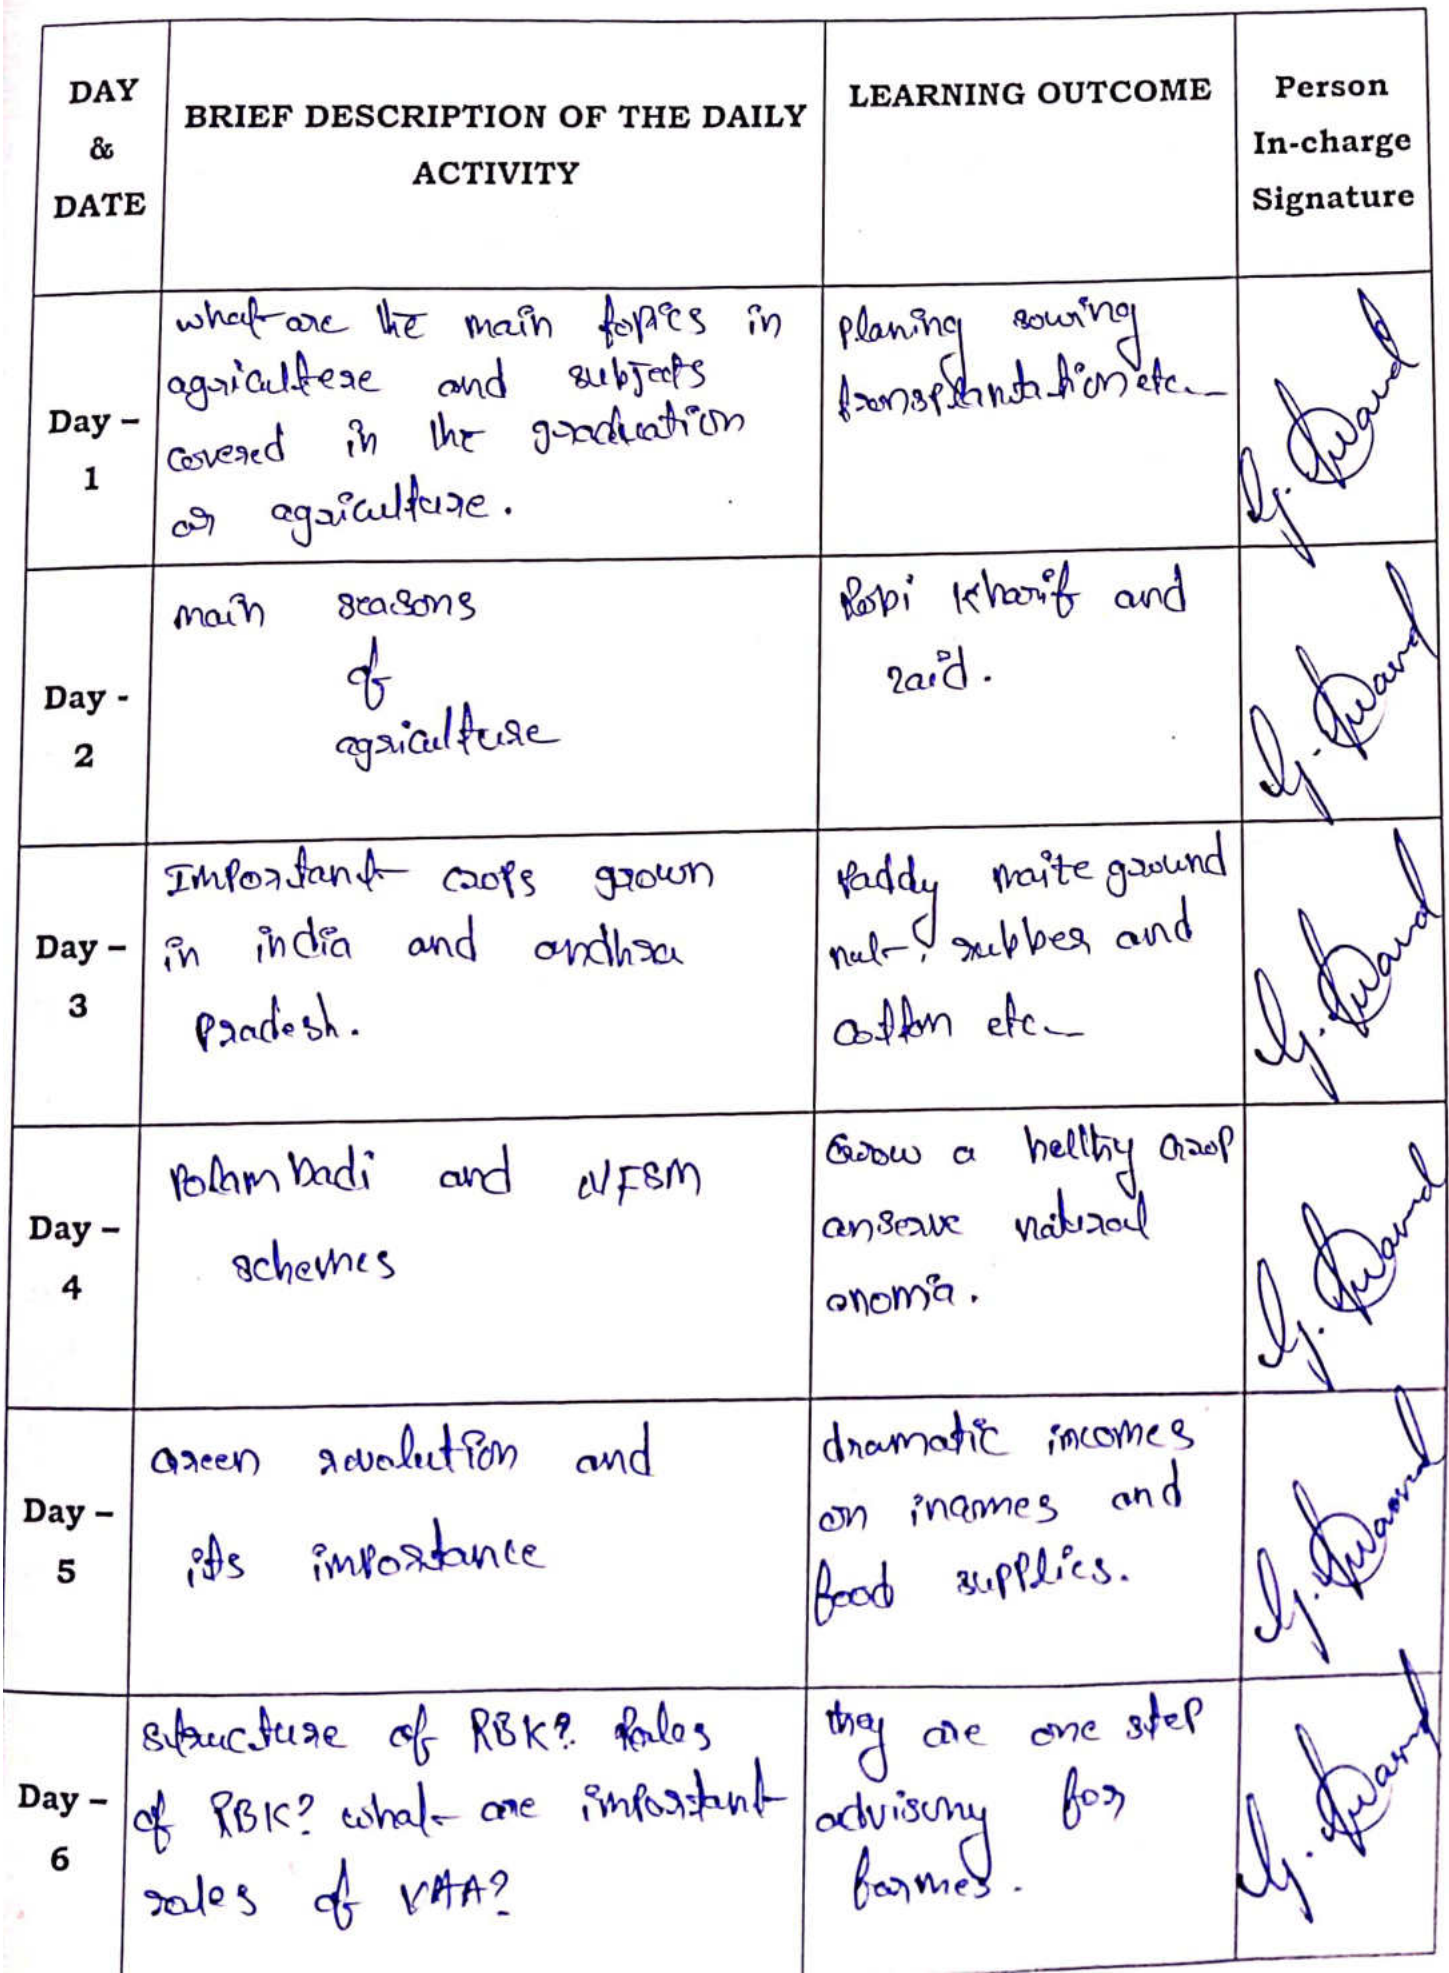 DAY
&
DATE
BRIEF DESCRIPTION OF THE DAILY
ACTIVITY
LEARNING OUTCOME
Person
In-charge
Signature
Day –
1
what are the main topics in
agricultere and subjects
covered in the graduation
or agriculture.
planing sowing
transplantation etc
Day -
2
main seasons
of
agriculture
Rabi Kharif and
zaid.
Day –
3
Important crops grown
in india and andhra
pradesh.
Paddy maize ground
nut, rubber and
cotton etc
Day –
4
Polam badi and NFSM
schemes
Grow a hellthy crop
conserve natural
Day –
5
Green revolution and
its importance
dramatic incomes
on incomes and
food supplies.
Day –
6
structure of RBK? Roles
of RBK? what are important
roles of VAA?
they are one step
for
farmes.